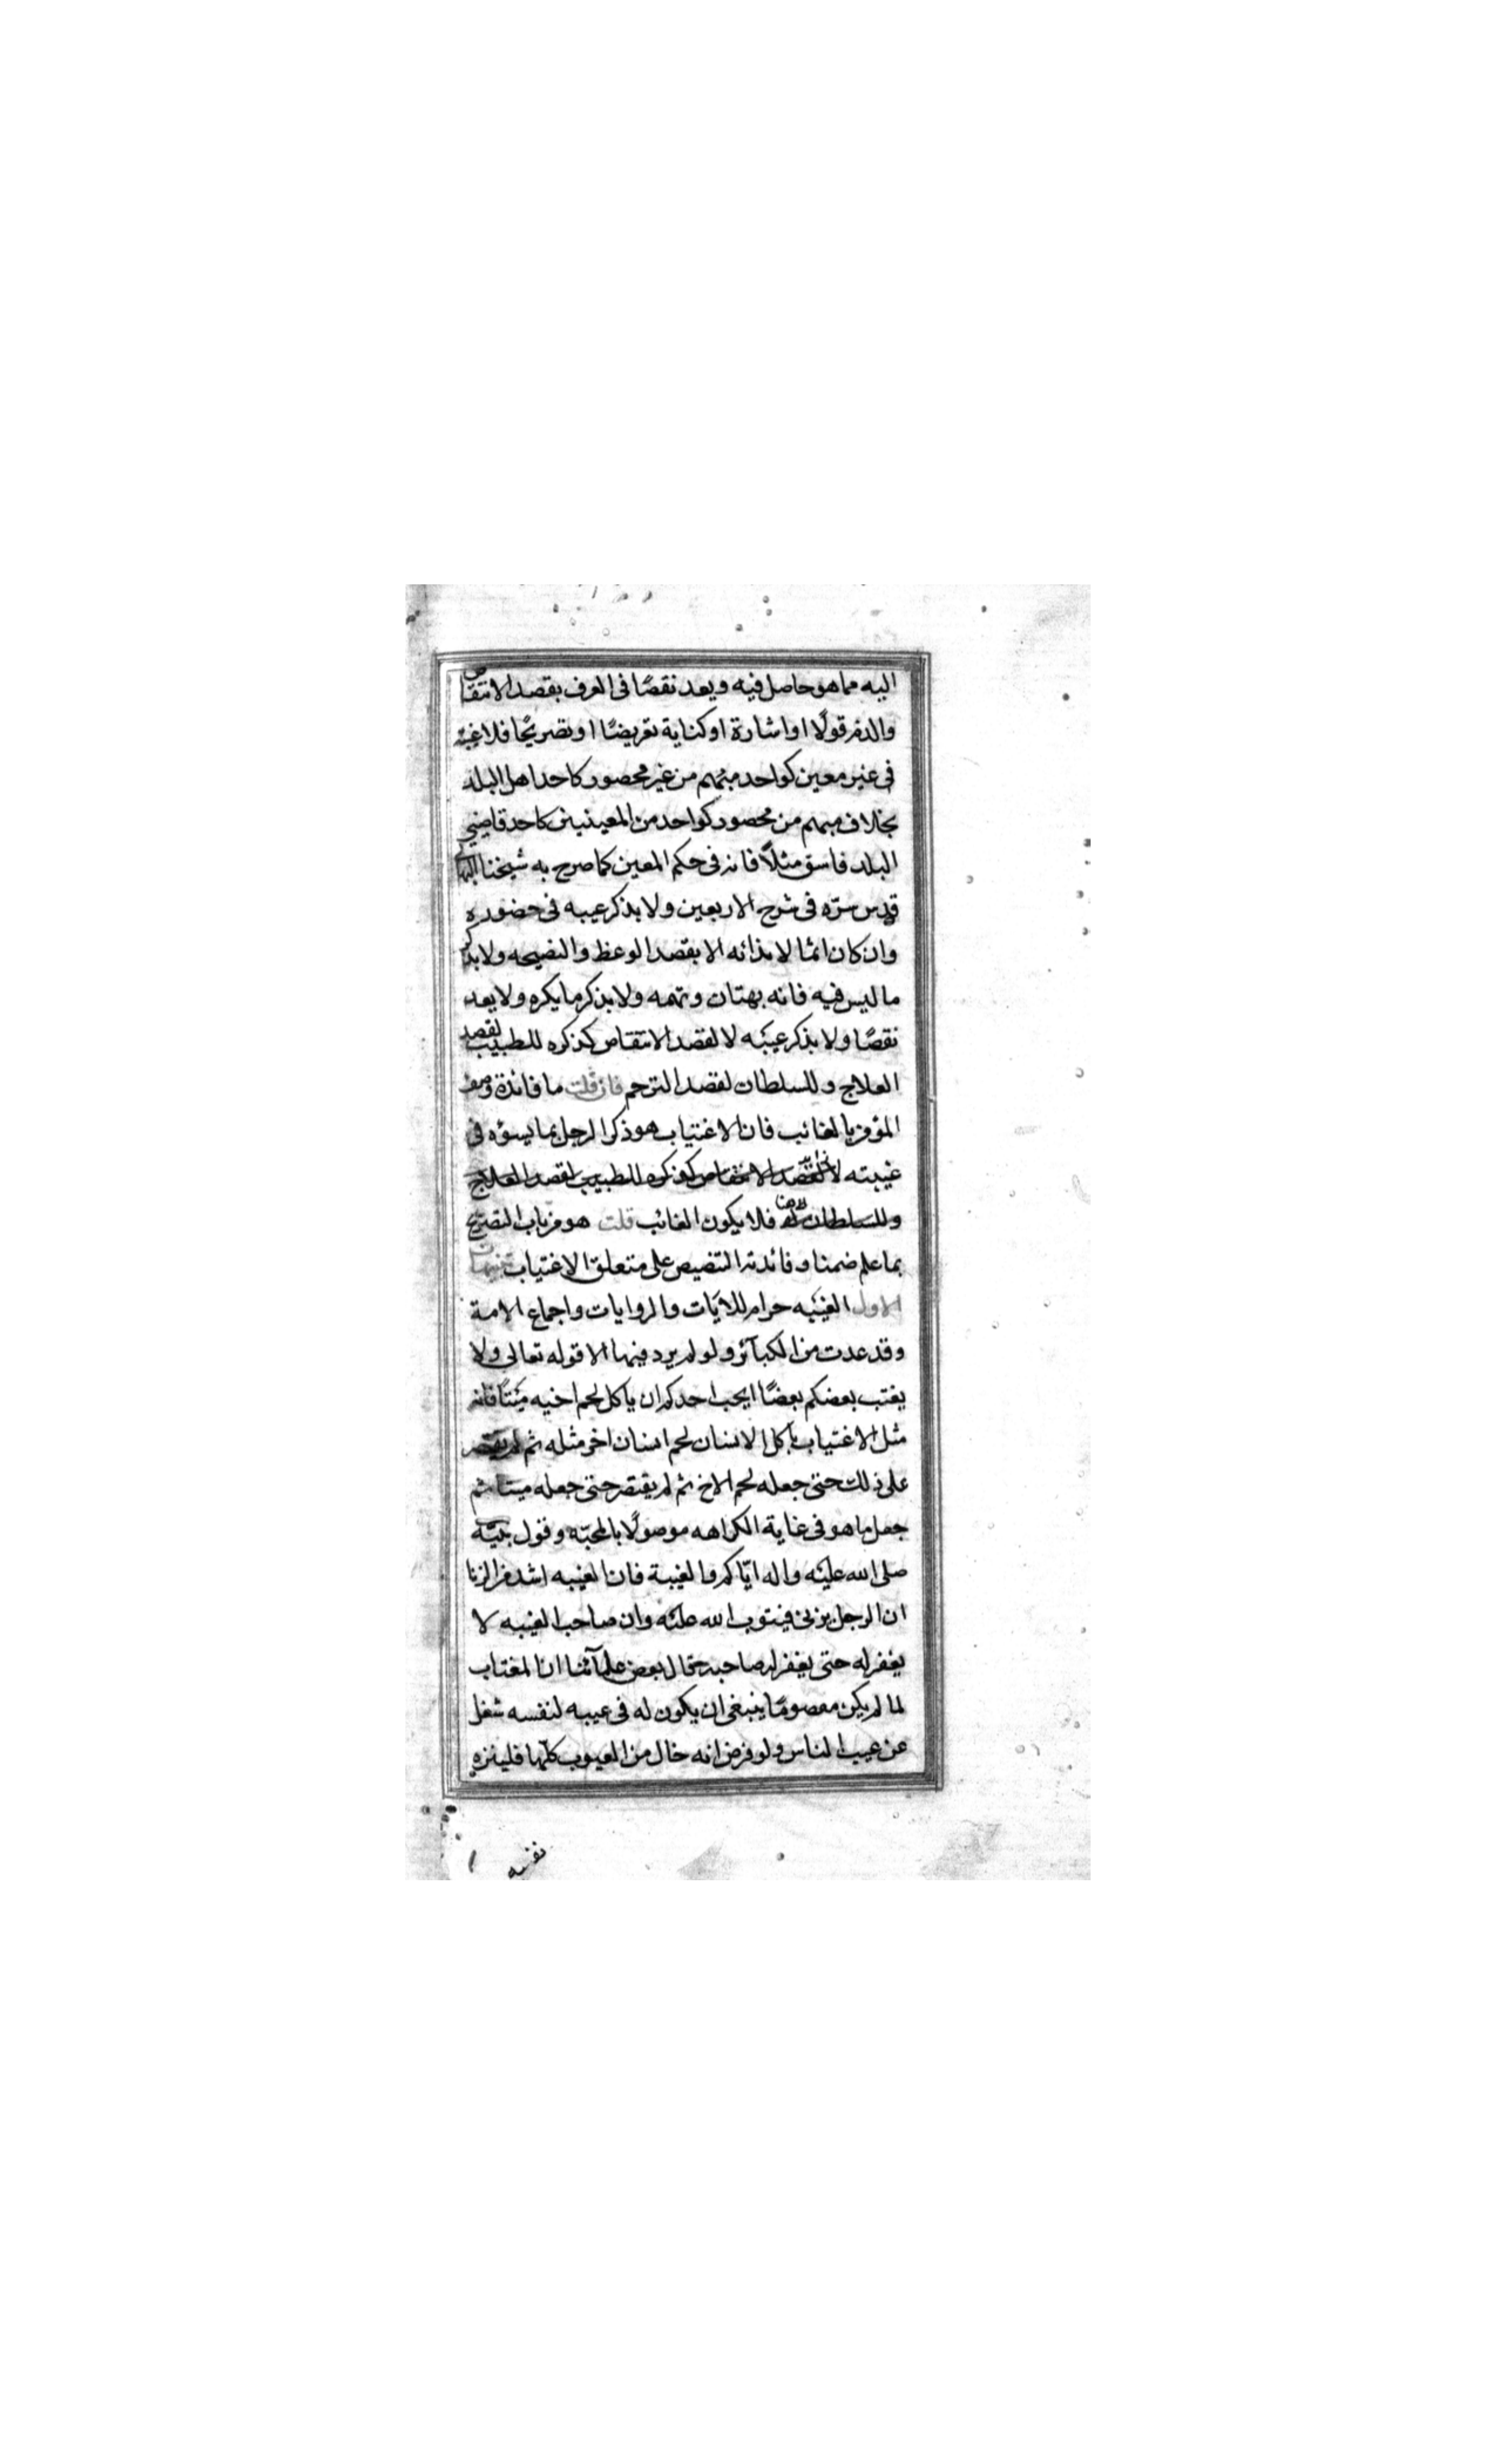 اليه مما هو حاصل فيه ويعد نقصًا فى العرف بقصد الانتقاص
والذم قولًا او اشارة او كناية تعريضًا او تصريحًا فلا غيبة
فى غير معين كواحد مبهم من غير محصور كاحد اهل البلد
بخلاف مبهم من محصور كواحد من المعينين كاحد قاضيي
البلد فاسق مثلًا فانه فى حكم المعين كما صرح به شيخنا البهائى
قدس سره فى شرح الاربعين ولا بذكر عيبه فى حضوره
وان كان اثما لايذائه الا بقصد الوعظ والنصيحه ولا بذكر
ما ليس فيه فانه بهتان وتهمه ولا بذكر ما يكره ولا يعد
نقصًا ولا بذكر عيبه لا لقصد الانتقاص كذكره للطبيب لقصد
العلاج وللسلطان لقصد الترحم فان قلت ما فائدة وصف
المؤمن بالغائب فان الاغتياب هو ذكر الرجل بما يسؤه فى
غيبته لا لقصد الانتقاص كذكره للطبيب لقصد العلاج
وللسلطان فلا يكون الغائب قلت هو من باب التصريح
بما علم ضمنا وفائدته التنصيص على متعلق الاغتياب تنبيهان
الاول الغيبه حرام للايات والروايات واجماع الامة
وقد عدت من الكبآئر ولو لم يرد فيها الا قوله تعالى ولا
يغتب بعضكم بعضًا ايحب احدكم ان ياكل لحم اخيه ميتًا فانه
مثل الاغتياب باكل الانسان لحم انسان اخر مثله ثم لم يقتصر
على ذلك حتى جعله لحم الاخ ثم لم يقتصر حتى جعله ميتا ثم
جعل ما هو فى غاية الكراهه موصولًا بالمحبّة وقول نبيّه
صلى الله عليه واله ايّاكم والغيبة فان الغيبه اشد من الزنا
ان الرجل يزنى فيتوب الله عليه وان صاحب الغيبه لا
يغفر له حتى يغفر له صاحبه قال بعض علمآئنا ان المغتاب
لما لم يكن معصومًا ينبغى ان يكون له فى عيبه لنفسه شغل
عن عيب الناس ولو فرض انه خال من العيوب كلّها فلينزه
نفسه